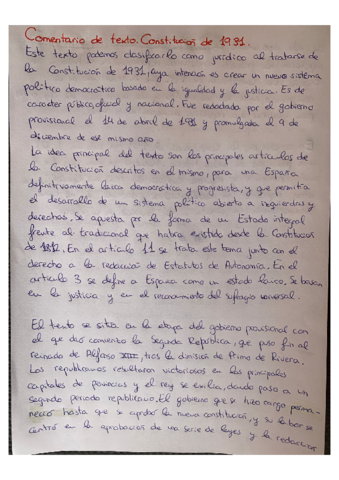 Comentario de texto. Constitución de 1931.
Este texto podemos clasificarlo como jurídico al tratarse de
la Constitución de 1931, cuya intención es crear un nuevo sistema
político democrático basado en la igualdad y la justicia. Es de
caracter público, oficial y nacional. Fue redactado por el gobierno
provisional el 14 de abril de 1931 y promulgada el 9 de
diciembre de ese mismo año.
La idea principal del texto son los principales artículos de
la Constitución descritos en el mismo, para una España
definitivamente laica, democrática y progresista, y que permitía
el desarrollo de un sistema político abierto a izquierdas y
derechas. Se apuesta por la forma de un Estado integral
frente al tradicional que había existido desde la Constitución
de 1812. En el artículo 11 se trata este tema junto con el
derecho a la redacción de Estatutos de Autonomía. En el
artículo 3 se define a España como un estado laico. Se basan
en la justicia y en el reconocimiento del sufragio universal.
El texto se sitúa en la etapa del gobierno provisional con
el que dio comienzo la Segunda República, que puso fin al
reinado de Alfonso XIII, tras la dimisión de Primo de Rivera.
Los republicanos resultaron victoriosos en las principales
capitales de provincias y el rey se exilia, dando paso a un
segundo periodo republicano. El gobierno que se tuvo cargo perma-
neció hasta que se aprobó la nueva constitución, y su labor se
centró en la aprobación de una serie de leyes y la redacción